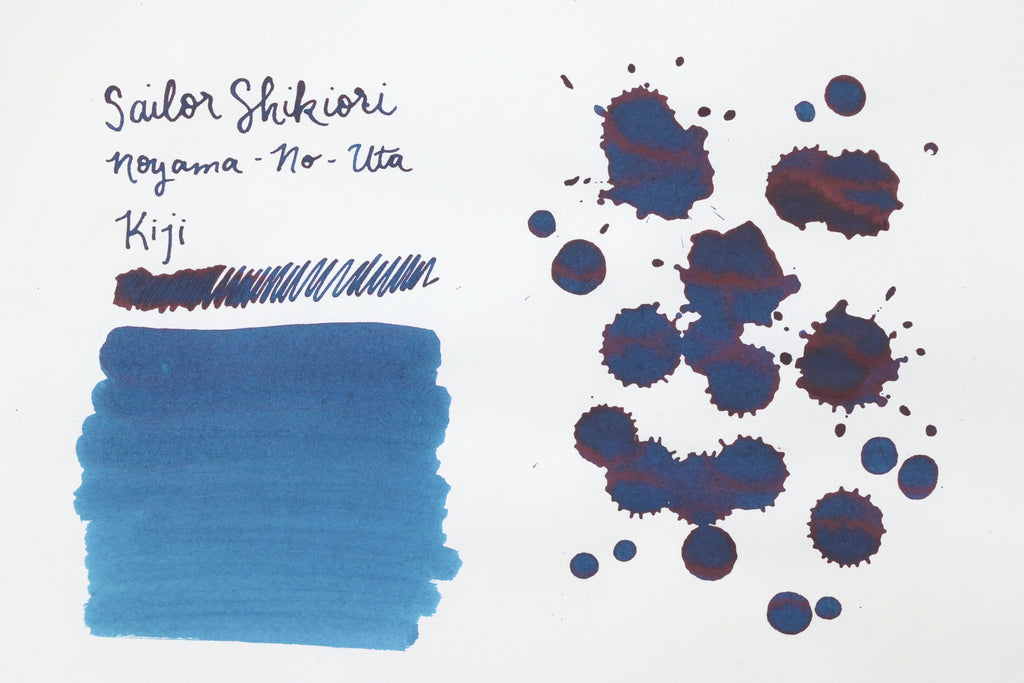 Sailor Shikiori
Noyama-No-Uta
Kiji